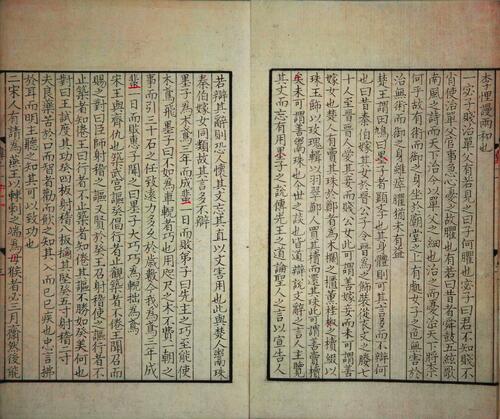 李悝謾兩和也
一宓子賤治單父有若見之曰子何臞也宓子曰君不知賤不
肖使治單父官事急心憂之故臞也有若曰昔者舜鼓五絃歌
南風之詩而天下治今以單父之細也治之而憂治天下將奈
何乎故有術而御之身坐於廟堂之上有處女子之色無害於
治無術而御之身雖瘁臞猶未有益
楚王謂田鳩曰墨子者顯學也其身體則可其言多而不辯何
也曰昔秦伯嫁其女於晉公子令晉為之飾裝從衣文之媵七
十人至晉晉人愛其妾而賤公女此可謂善嫁妾而未可謂善
嫁女也楚人有賣其珠於鄭者為木蘭之櫃薰桂椒之櫝綴以
珠玉飾以玫瑰輯以羽翠鄭人買其櫝而還其珠此可謂善賣櫝
矣未可謂善鬻珠也今世之談也皆道辯說文辭之言人主覽
其文而忘有用墨子之說傳先王之道論聖人之言以宣告人
若辯其辭則恐人懷其文忘其直以文害用也此與楚人鬻珠
秦伯嫁女同類故其言多不辯
墨子為木鳶三年而成蜚一日而敗弟子曰先生之巧至能使
木鳶飛墨子曰不如為車輗者巧也用咫尺之木不費一朝之
事而引三十石之任致遠力多久於歲數今我為鳶三年成
蜚一日而敗惠子聞之曰墨子大巧巧為輗拙為鳶
宋王與齊仇也築武宮謳癸倡行者止觀築者不倦王聞召而
賜之對曰臣師射稽之謳又賢於癸王召射稽使之謳行者不
止築者知倦王曰行者不止築者知倦其謳不勝如癸美何也
對曰王試度其功癸四板射稽八板擿其堅癸五寸射稽二寸
夫良藥苦於口而智者勸而飲之知其入而已己疾也忠言拂
於耳而明主聽之知其可以致功也
二宋人有請為燕王以棘刺之端為母猴者必三月齋然後能